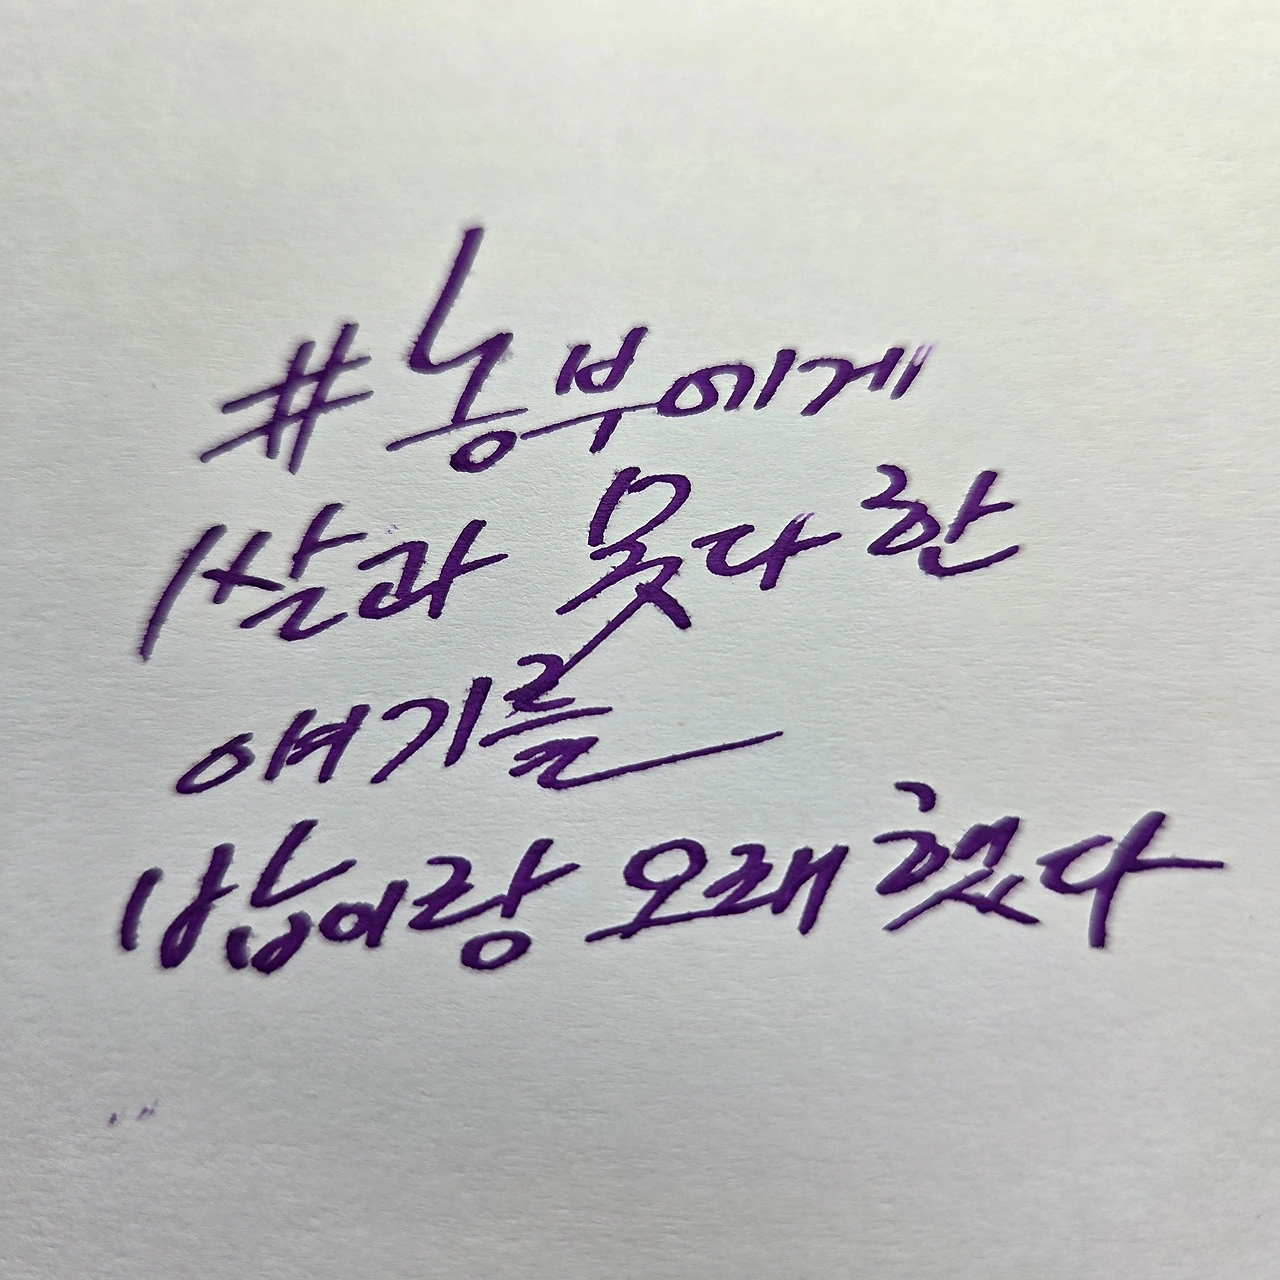 #농부에게
쌀과 못다 한
얘기를
밥이랑 오래 했다